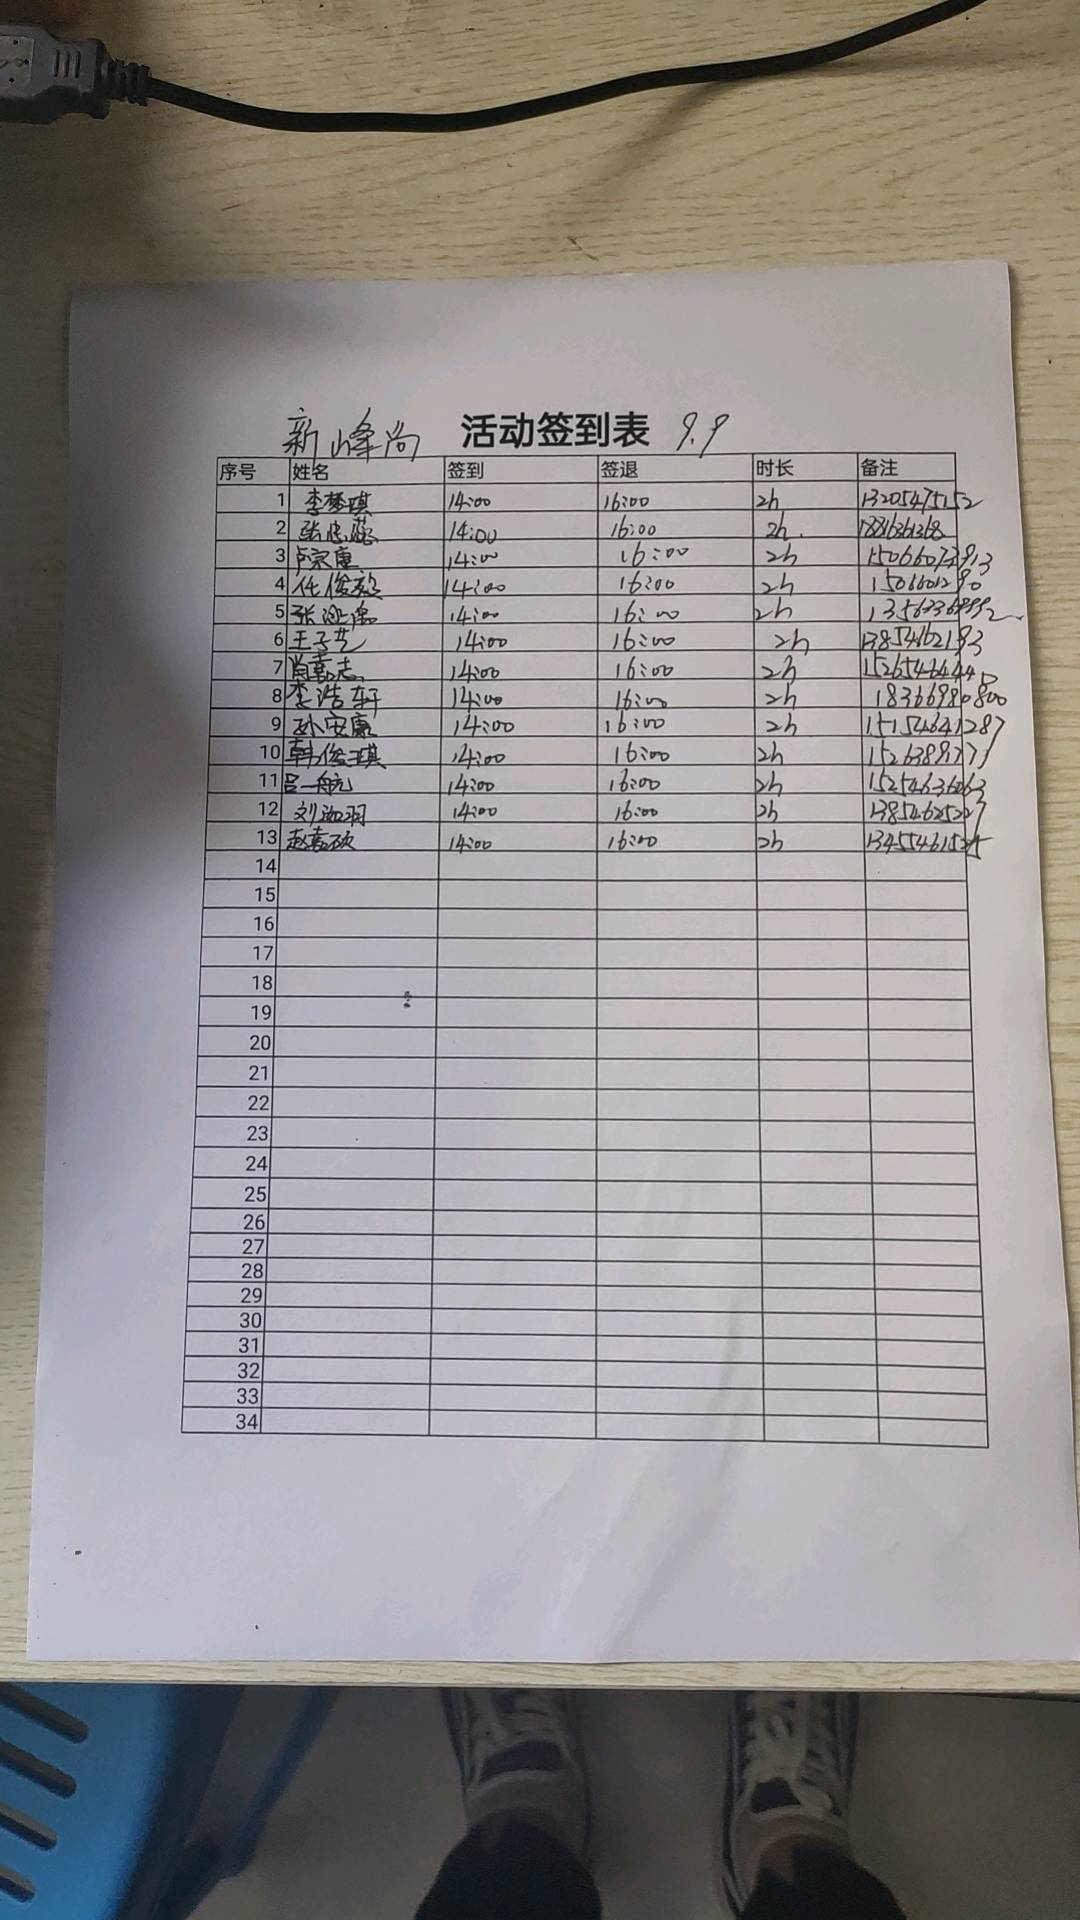 新峰尚 活动签到表 9.9
序号 姓名 签到 签退 时长 备注
1 李梦琪 14:00 16:00 2h 13205475152
2 14:00 16:00 2h. 18816361368
3 卢宗康 14:00 16:00 2h 15066073913
4 任俊 14:00 16:00 2h
5 张 14:00 16:00 2h
6 王子艺 14:00 16:00 2h
7 肖嘉志 14:00 16:00 2h
8 李浩轩 14:00 16:00 2h 18366980800
9 孙安康 14:00 16:00 2h 15154641287
10 韩俊琪 14:00 16:00 2h
11 吕一航 14:00 16:00 2h 15254636063
12 刘 羽 14:00 16:00 2h 13854625227
13 赵嘉硕 14:00 16:00 2h 13455461525
14
15
16
17
18
19
20
21
22
23
24
25
26
27
28
29
30
31
32
33
34